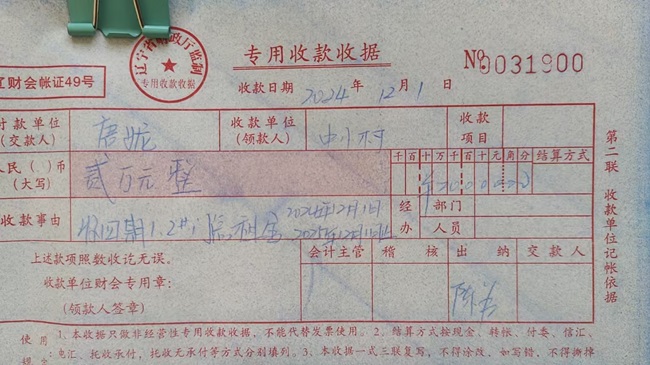 辽宁省财政厅监制
专用收款收据
专用收款收据
No 0031900
辽财会帐证49号
收款日期 2024年12月1日
付款单位(交款人) 唐妮 收款单位(领款人) 中小村 收款项目
人民( )币(大写) 贰万元整 千百十万千百十元角分 结算方式
¥2000000
收款事由 收四期1.2#1 2024年12月1日
2025年12月1日止
经办 部门
人员
上述款项照数收讫无误。
收款单位财会专用章:
(领款人签章)
会计主管 稽核 出纳 交款人
第二联 收款单位记帐依据
使用 1、本收据只做非经营性专用收款收据,不能代替发票使用。 2、结算方式按现金、转帐、付委、信汇、
电汇、托收承付,托收无承付等方式分别填列。 3、本收据一式三联复写,不得涂改,如写错,不得撕掉